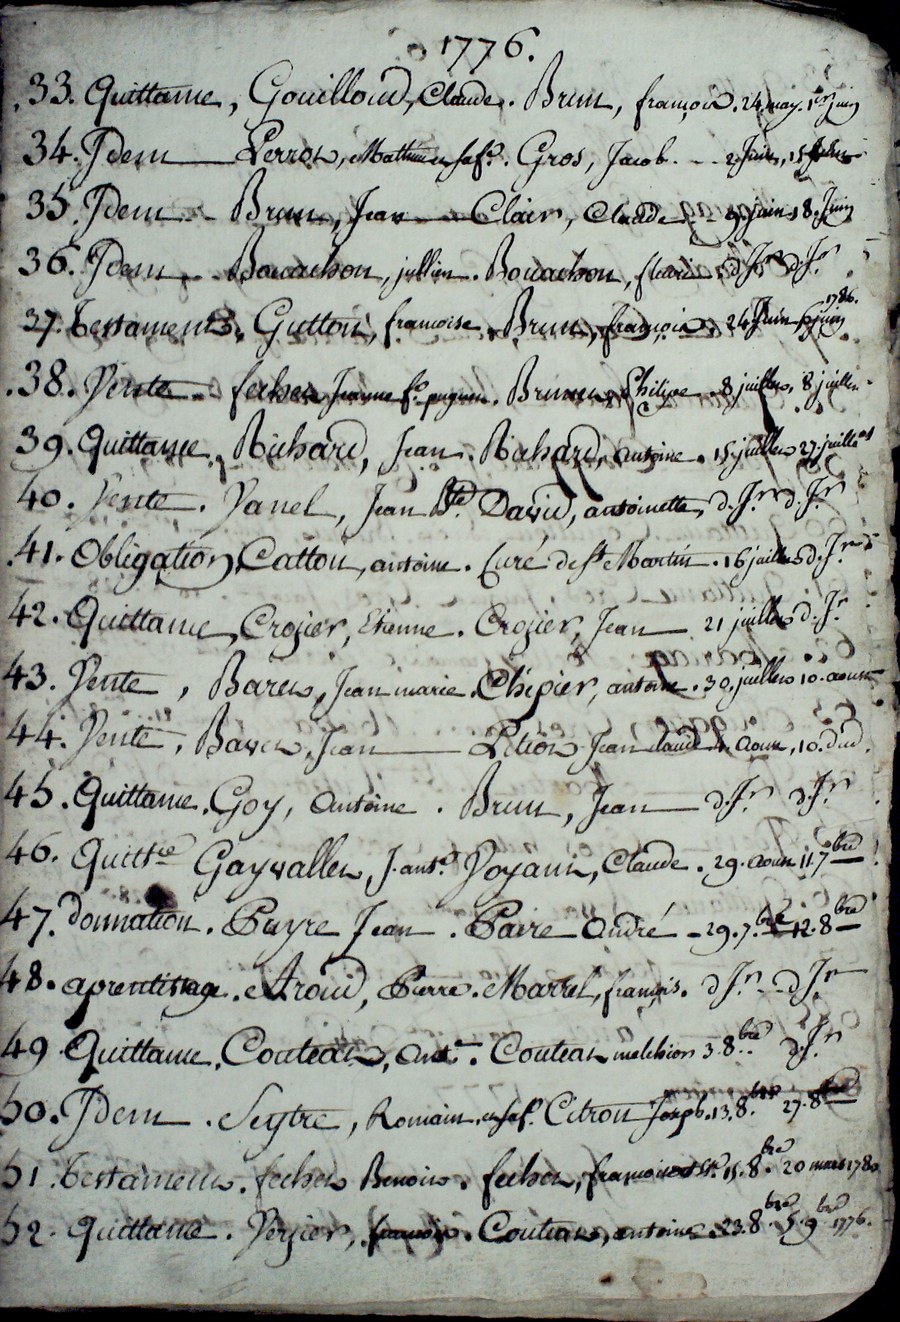 1776.
33. Quittance, Gouilloud, Claude. Brun, françois. 24. may. 1er juin
34. Idem Perron, Mathieu et sa fe. Gros, Jacob. 2. juin, 15
35. Idem Brun, Jean Clair, Claude. 9. Juin 18. Juin
36. Idem Bouachon, jullien. Bouachon, fleurie d. Jr d. Jr
37. Testament. Gutton, françoise. Brun, françois. 24 Juin juin 1786.
38. Vente. fecher Jeanne fe. Brunon, Philipe. 8 juillet, 8 juillet
39. Quittance. Richard, Jean. Richard, antoine. 15. juillet 27. juillet
40. Vente. Vanel, Jean Bte. David, antoinette, d. Jr d. Jr
41. Obligation, Catton, antoine. Curé de St Martin. 16 juillet d. Jr
42. Quittance, Crozier, Etienne. Crozier, Jean 21 juillet d. Jr
43. Vente, Baret, Jean marie. Chipier, antoine. 30. juillet 10. aoust
44. Vente, Jean Jean claude 4. Aoust, 10. dud.
45. Quittance. Goy, Antoine. Brun, Jean d. Jr d. Jr
46. Quittce Gayvallet, J. ante. Voyant, Claude. 29. Aoust 11. 7bre
47. donnation. Payre Jean. Paire André 29. 7bre 12. 8bre
48. aprentissage. Aroud, Pierre. Martel, françois. d Jr d Jr
49. Quittance. Couteau, Antne. Couteau melchior 3. 8bre d. Jr
50. Idem. Seytre, Romain et sa fe. Citron Joseph. 13. 8bre 27. 8bre
51. Testament. fecher Benoit. fecher, françoise 15. 8bre 20 mars 1780
52. Quittance. Verzier, françois. Couteau, antoine. 23. 8bre 5. 9bre 1776.